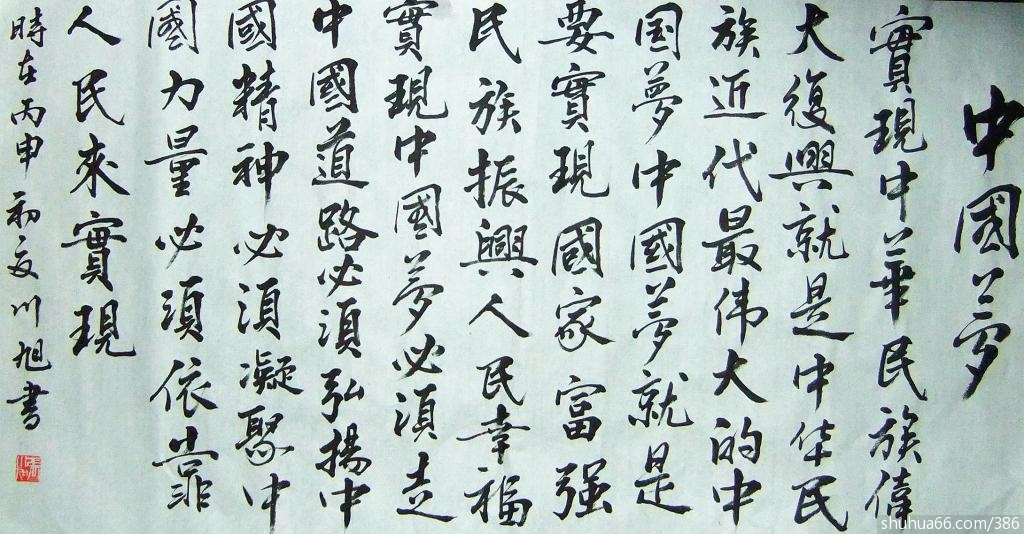 中國夢
實現中華民族偉
大復興就是中华民
族近代最伟大的中
国夢中國夢就是
要實現國家富强
民族振興人民幸福
實現中國夢必須走
中國道路必須弘揚中
國精神必須凝聚中
國力量必須依靠
人民來實現
時在丙申初夏川旭書
shuhua66.com/386